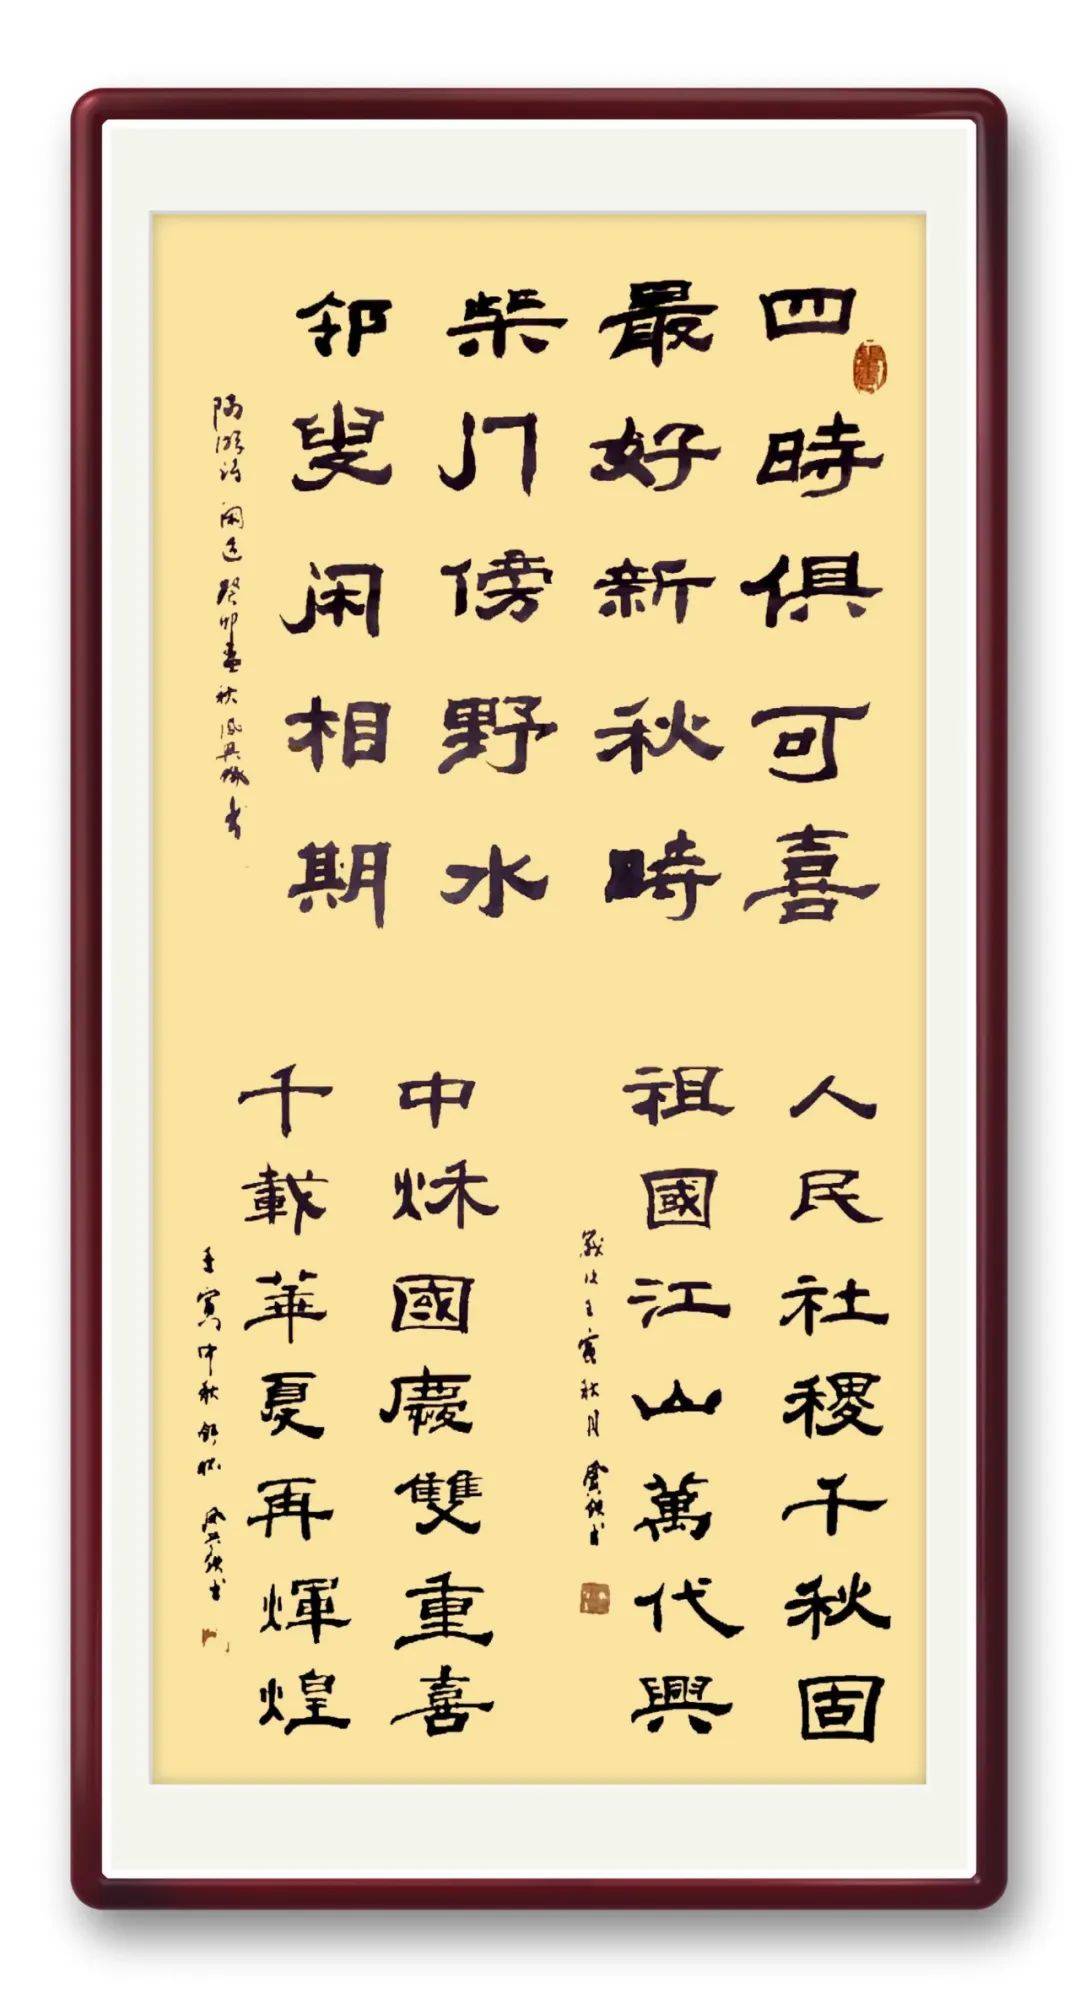 四時俱可喜
最好新秋時
柴门傍野水
邻叟闲相期
陆游诗 闲适 癸卯孟秋
人民社稷千秋固
祖國江山萬代興
歲次壬寅秋月
中秌國慶雙重喜
千載華夏再煇煌
壬寅中秋